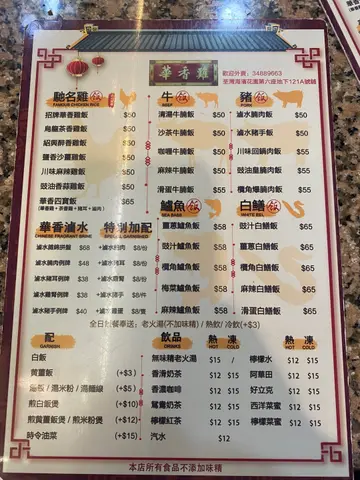 華香雞
歡迎外賣：34889663
荃灣海濱花園第六座地下121A號舖
馳名雞飯
FAMOUS CHICKEN RICE
招牌華香雞飯 $50
烏龍茶香雞飯 $50
紹興醉香雞飯 $50
鹽香沙薑雞飯 $50
川味麻辣雞飯 $50
豉油香蒜雞飯 $50
華香四寶飯 $65
牛飯
BEEF
清湯牛腩飯 $50
沙茶牛腩飯 $50
咖喱牛腩飯 $50
麻辣牛腩飯 $50
滑蛋牛腩飯 $55
豬飯
PORK
滷水腩肉飯 $50
滷水豬手飯 $50
川味回鍋肉飯 $55
豉油皇腩肉飯 $55
欖角爆腩肉飯 $55
華香滷水
CHINESE FRAGRANT BRINE
滷水腩肉例牌 $48
滷水豬耳例牌 $38
滷水雞腎例牌 $38
滷水豬手例牌 $40
特別加配
GARNISH
+滷水腩肉 $8/份
+滷水豬耳 $8/份
+滷水雞腎 $8/份
+滷水豬手 $8/件
+滷水雞蛋 $8/隻
鱸魚飯
SEA BASS
薑蔥鱸魚飯 $58
豉汁鱸魚飯 $58
欖角鱸魚飯 $58
梅菜鱸魚飯 $58
麻辣鱸魚飯 $58
白鱔飯
WHITE EEL
豉汁白鱔飯 $65
薑蔥白鱔飯 $65
欖角白鱔飯 $65
麻辣白鱔飯 $65
滑蛋白鱔飯 $65
全日飯餐奉送：老火湯(不加味精) / 熱飲/ 冷飲(+$3)
配
GARNISH
白飯
黃薑飯 (+$3)
烏飯 / 湯米粉 / 湯麵線 (+$5)
煎白飯煲 (+$10)
煎黃薑飯煲 / 煎米粉煲 (+$12)
時令油菜 (+$15)
飲品
DRINKS
熱 HOT 凍 COLD
無味精老火湯 $15 /
香滑奶茶 $12 $15
香濃咖啡 $12 $15
鴛鴦奶茶 $12 $15
檸檬紅茶 $12 $15
汽水 $12
熱 HOT 凍 COLD
檸檬水 $12 $15
阿華田 $12 $15
好立克 $12 $15
西洋菜蜜 $12 $15
檸檬菜蜜 $12 $15
本店所有食品不添加味精